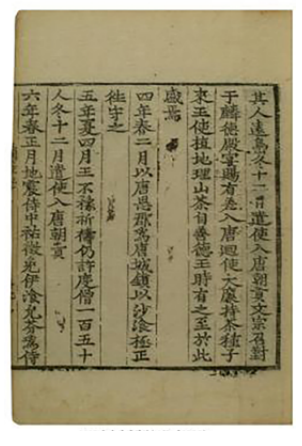 其人遠島冬十二月遣使入唐朝貢文宗召對
于麟德殿宴賜有差入唐迴使大廉持茶種子
來王使植地理山茶自善德王時有之至於此
盛焉
四年春二月以唐恩郡爲唐城鎭以沙飡極正
往守之
五年夏四月王不豫祈禱仍許度僧一百五十
人冬十二月遣使入唐朝貢
六年春正月地震侍中祐徵免伊飡允芬爲侍